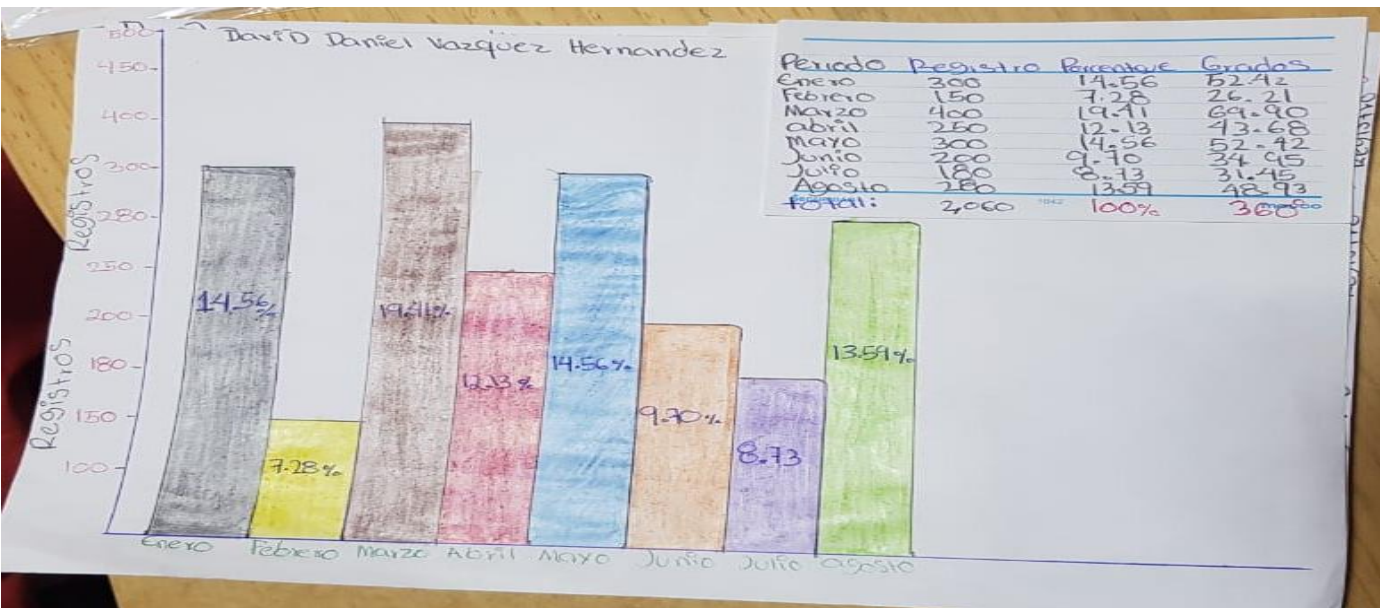 David Daniel Vazquez Hernandez
Periodo Registro Porcentaje Grados
Enero 300 14.56 52.42
Febrero 150 7.28 26.21
Marzo 400 19.41 69.90
abril 250 12.13 43.68
Mayo 300 14.56 52.42
Junio 200 9.70 34.95
Julio 180 8.73 31.45
Agosto 280 13.59 48.93
total: 2,060 100% 360°
500
450
400
300
280
250
200
180
150
100
Registros
Registros
14.56%
7.28%
19.41%
12.13%
14.56%
9.70%
8.73
13.59%
Enero Febrero Marzo Abril Mayo Junio Julio agosto